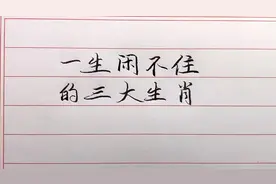 一生闲不住
的三大生肖